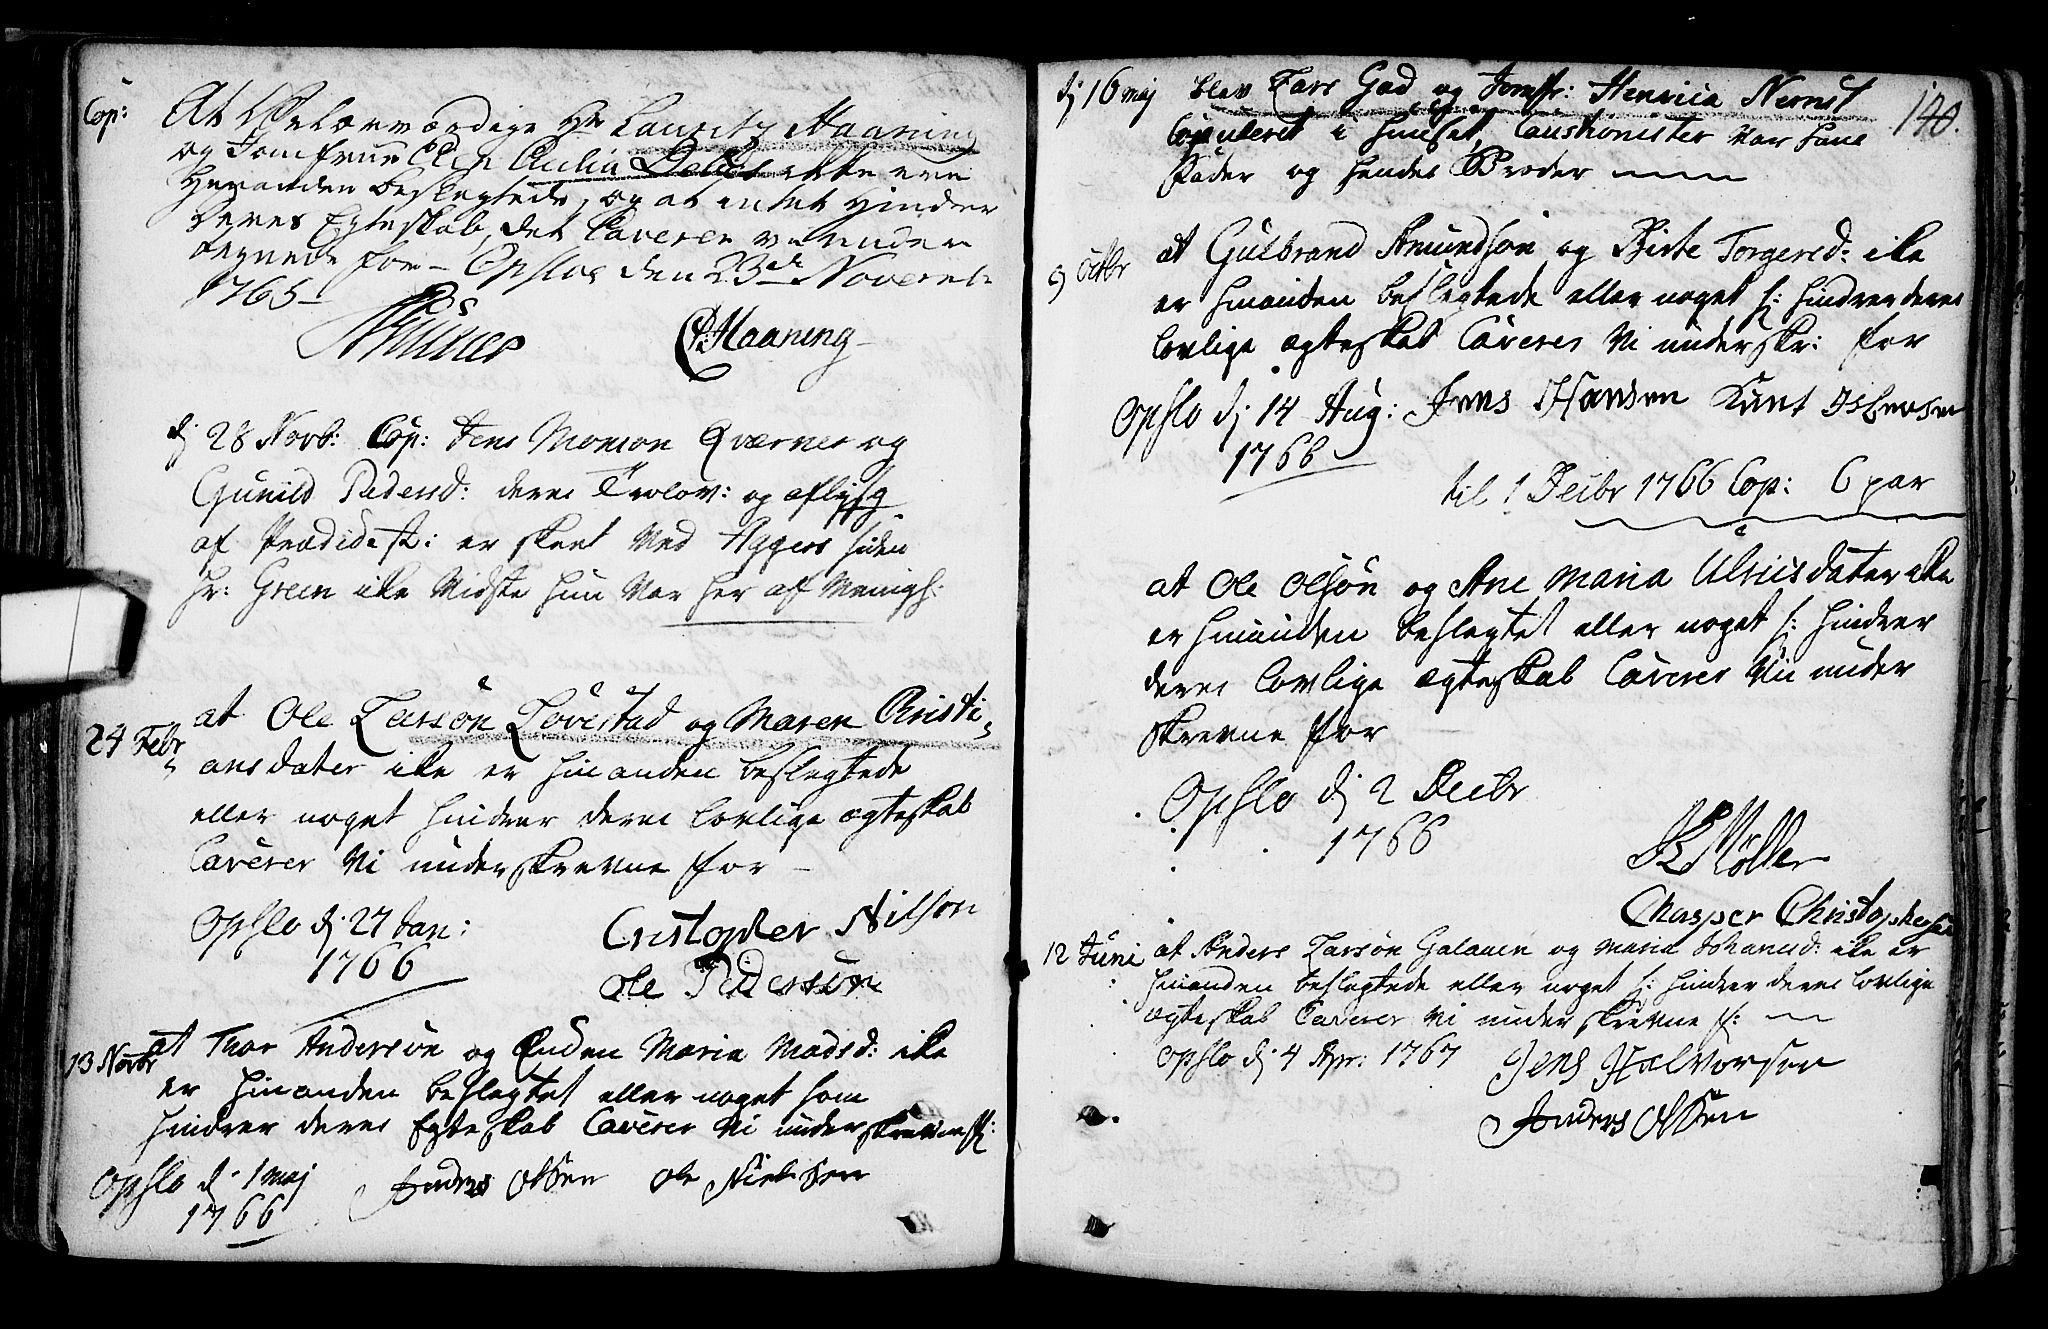 Cop:
At Velærværdige Hr Lauritz Haaning
og Jomfrue Elen Cicilia ikke ere
Hverandre beslegtede, og at intet Hindrer
Deres Egteskab, det Caverer vi under
tegnede for — Opsloe den 23de Novembr
1765 —
Haaning
dj 28 Novb: Cop: Jens Monson Qværner og
Gunild Pedersd: deres Trolov: og aflysg
af Prædikest: er skeet ved Aggers siden
Hr: Green ike vidste hun var her af Menigh:
24 Febr
at Ole Larsøn Lovestad og Maren Christi-
ansdater ike er hinanden beslegtede
eller noget hindrer deres lovlige ægteskab
Caverer vi underskrevne for —
Opslo dj 27 Jan:
1766
Cristopher Nilson
Ole Pedersøn
13 Novbr
at Thor Andersøn og Maria Madsd: ike
er hinanden beslegtet eller noget som
hindrer deres Egteskab Caverer vi underskrevne f:
Opslo d. 1 maj
1766
Anders Olsen Ole Nielsen
140.
dj 16 maj blev Lars Gad og Jomfr: Henrica Nernst
Copuleret i huuset, Cautionister var hans
Fader og hendes Broder
9 Octbr
at Gulbrand Amundsøn og Birte Torgersd: ike
er hinanden beslegtede eller noget s: hindrer deres
lovlige ægteskab Caverer vi underskr: for
Opslo dj 14 Aug: Jens Hansen Knut
1766
til 1 Decbr 1766 Cop: 6 par
at Ole Olsøn og Ane Maria Ulricsdater ike
er hinanden beslegtet eller noget s: hindrer
deres lovlige ægteskab Caverer vii under
skrevne for
Opslo dj 2 Decbr
1766
Møller
Casper Christophersen
12 Juni
at Anders Larsøn Galaaen og Maria Johansd: ike er
hinanden beslegtede eller noget s: hindrer deres lovlige
ægteskab Caverer vi underskrevne f:
Opslo dj 4 Apr: 1767
Jens Halvorsen
Anders Olsen